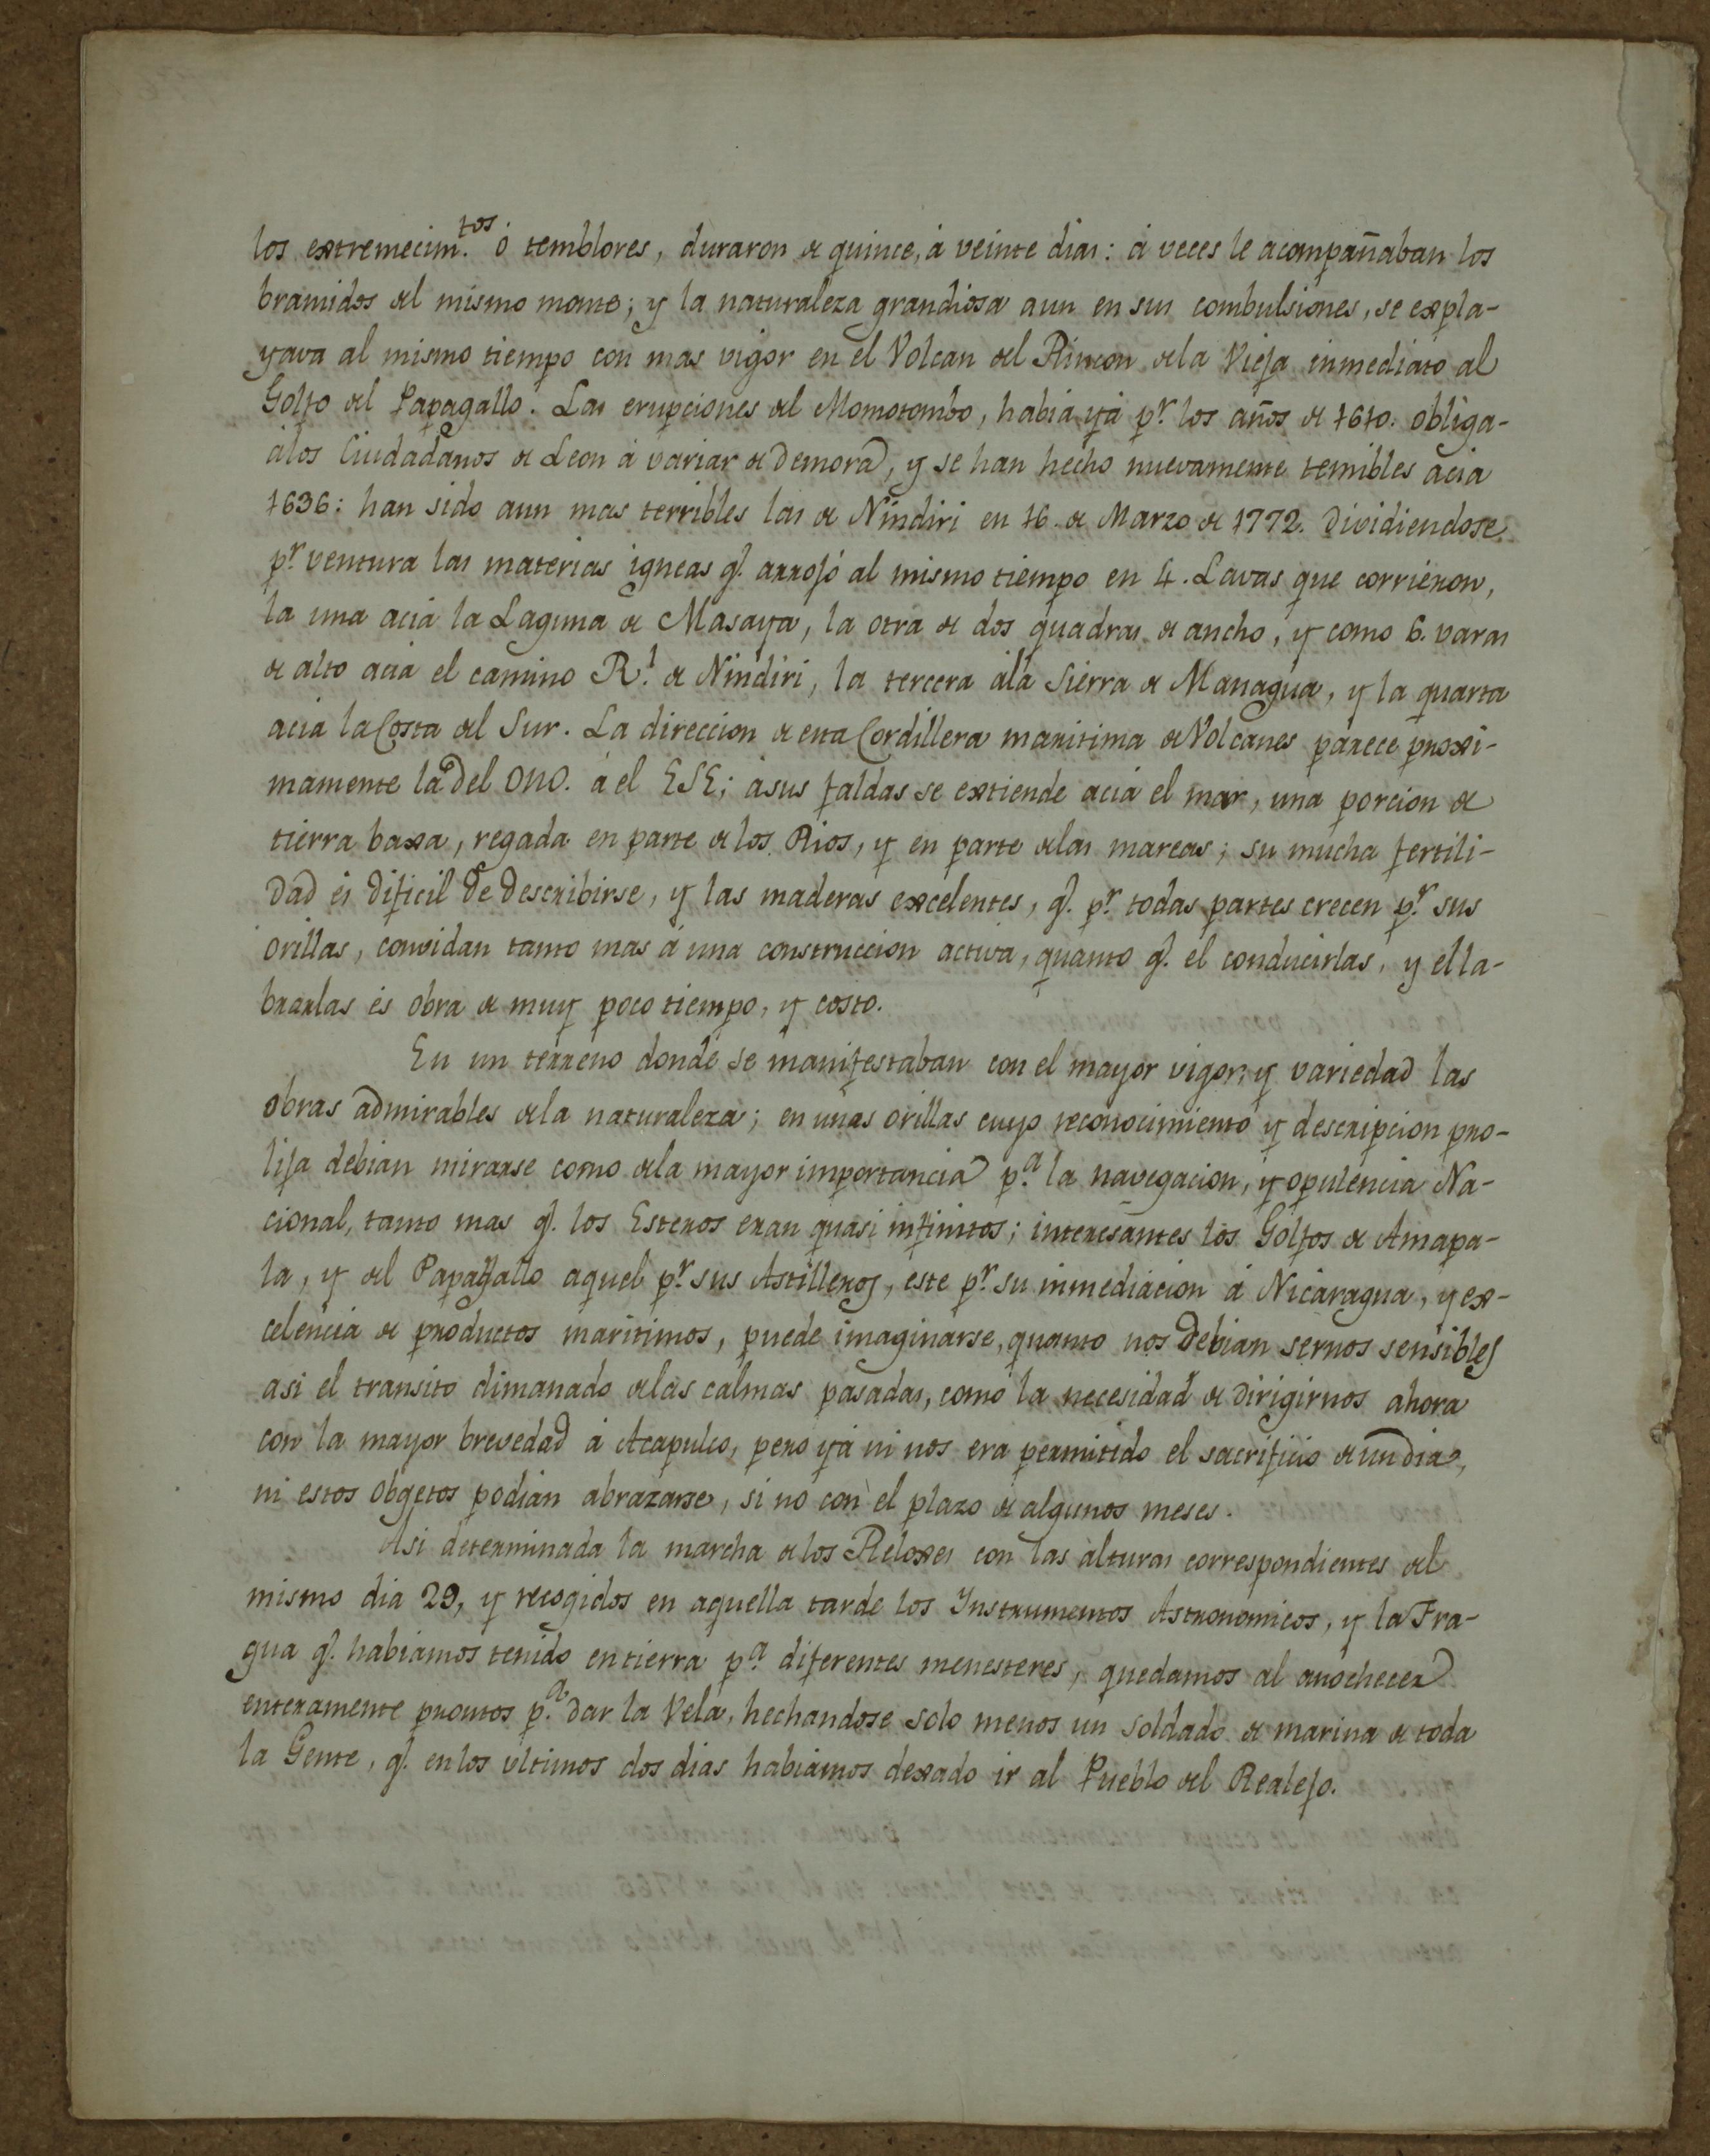 los extremecim.tos ó temblores, duraron de quince, á veinte dias: á veces le acompañaban los
bramidos del mismo monte; y la naturaleza grandiosa aun en sus combulsiones, se expla-
yava al mismo tiempo con mas vigor en el Volcan del Rincon dela Vieja inmediato al
Golfo del Papagallo. Las erupciones del Momotombo, habia yá pr. los años de 1610. obliga-
álos Ciudadanos de Leon á variar de Demora, y se han hecho nuevamente temibles acia
1636: han sido aun mas terribles las de Nindiri en 16. de Marzo de 1772. Dividiendose
pr. ventura las materias igneas q. arrojó al mismo tiempo en 4. Lavas que corrieron,
la una acia la Laguna de Masaya, la otra de dos quadras de ancho, y como 6. varas
de alto acia el camino Rl. de Nindiri, la tercera ála Sierra de Managua, y la quarta
acia la Costa del Sur. La direccion de esta Cordillera maritima de Volcanes parece proxi-
mamente la del ONO. á el ESE; ásus faldas se extiende acia el mar, una porcion de
tierra baxa, regada en parte de los Rios, y en parte delas mareas; su mucha fertili-
dad es dificil de describirse, y las maderas excelentes, q. pr. todas partes crecen pr. sus
orillas, convidan tanto mas á una construccion activa, quanto q. el conducirlas, y el la-
brarlas es obra de muy poco tiempo, y costo.
En un terreno donde se manifestaban con el mayor vigor, y variedad las
obras admirables dela naturaleza; en unas orillas cuyo reconocimiento y descripcion pro-
lija debian mirarse como dela mayor importancia pa. la navegacion, y opulencia Na-
cional, tanto mas q. los Esteros eran quasi infinitos; interesantes los Golfos de Amapa-
la, y del Papagallo aquel pr. sus Astilleros, este pr. su inmediacion á Nicaragua, y ex-
celencia de productos maritimos, puede imaginarse, quanto nos debian sernos sensibles
asi el transito dimanado delas calmas pasadas, como la necesidad de dirigirnos ahora
con la mayor brevedad á Acapulco, pero yá ni nos era permitido el sacrificio de un dia,
ni estos obgetos podian abrazarse, si no con el plazo de algunos meses.
Asi determinada la marcha de los Reloxes con las alturas correspondientes del
mismo dia 29, y recogidos en aquella tarde los Instrumentos Astronomicos, y la Fra-
gua q. habiamos tenido en tierra pa. diferentes menesteres, quedamos al anochecer
enteramente prontos pa. dar la Vela, hechandose solo menos un soldado de marina de toda
la Gente, q. en los ultimos dos dias habiamos dexado ir al Pueblo del Realejo.